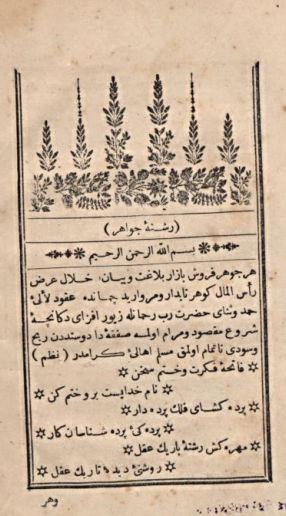 (رشتهٔ جواهر)
بسم الله الرحمن الرحيم
هر جوهر فروش بازار بلاغت وبيان خلال عرض
رأس المال كوهر تابدار ومرواريد چمانده عقود لآلئ
حمد وثناى حضرت رب رحمانله زيور افزاى دكانچهٔ
شروع مقصود ومرام اولمسه صفقهٔ دادوستددن ربح
وسودى ناتمام اولمق مسلم اهالئ كرامدر (نظم)
فاتحهٔ فكرت وختم سخن
نام خدايست برو ختم كن
پرده كشاى فلك پرده دار
پردكئ پرده شناسان كار
مهره كش رشتهٔ باريك عقل
روشنئ ديدهٔ تاريك عقل
وهر